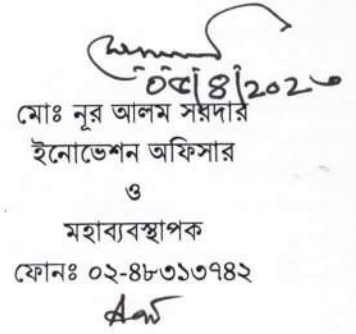 ০৫/৪/২০২৩
মোঃ নূর আলম সরদার
ইনোভেশন অফিসার
ও
মহাব্যবস্থাপক
ফোনঃ ০২-৪৮৩১৩৭৪২